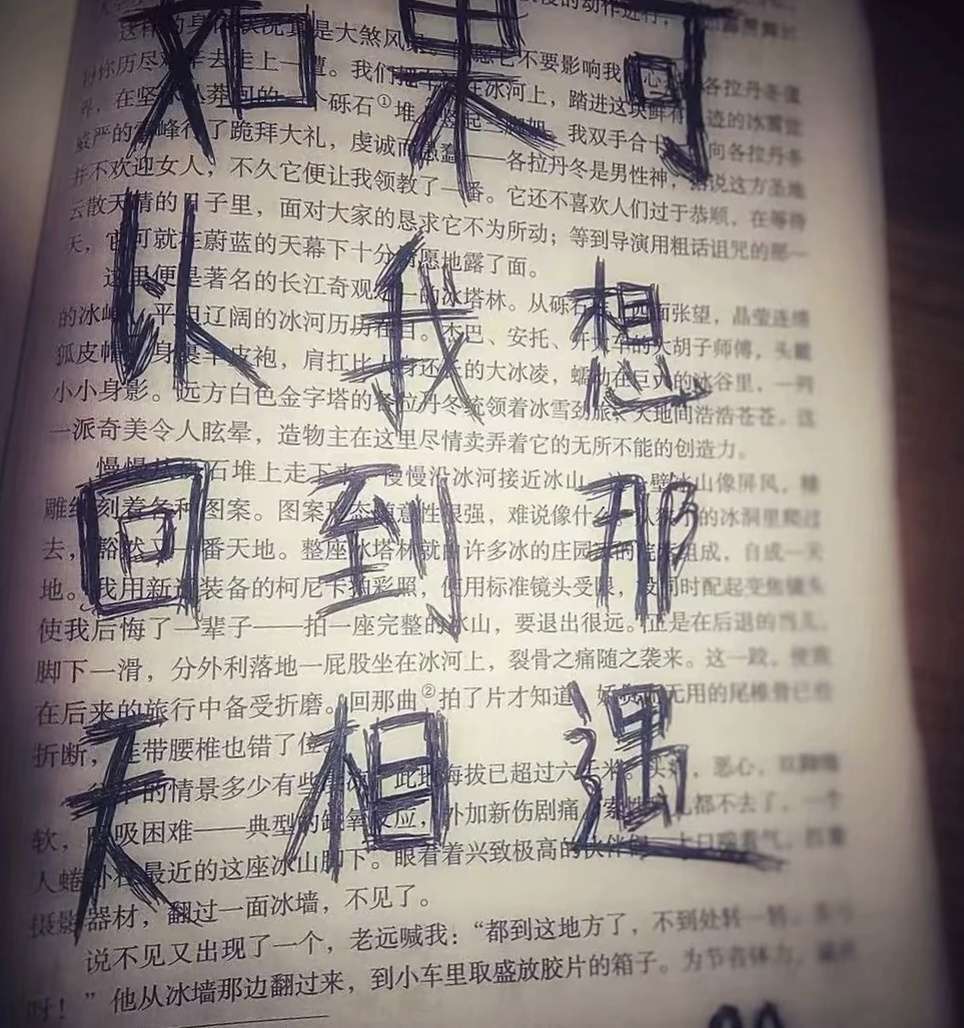 如果可
以我想
回到那
天相遇
这样的身体状况真是大煞风景 它不要影响我
历尽艰辛去走上一遭。我们把车停在冰河上，踏进这块鲜有 迹的冰雪世
界，在坚 莽 的一个砾石①堆上竖起 我双手合十 向各拉丹冬
威严的雪峰行了跪拜大礼，虔诚而愚蠢——各拉丹冬是男性神，据说这方圣地
并不欢迎女人，不久它便让我领教了一番。它还不喜欢人们过于恭顺，在等待
云散天晴的日子里，面对大家的恳求它不为所动；等到导演用粗话诅咒的那一
天，它可就在蔚蓝的天幕下十分情愿地露了面。
这里便是著名的长江奇观之一的冰塔林。从砾石 四面张望，晶莹连绵
的冰峰 平坦辽阔的冰河历历在目。杰巴、安托、开大车的大胡子师傅，头戴
狐皮帽 身裹羊皮袍，肩扛比人身还长的大冰凌，蠕动在巨大的冰谷里，一列
小小身影。远方白色金字塔的各拉丹冬统领着冰雪劲旅，天地间浩浩苍苍。这
一派奇美令人眩晕，造物主在这里尽情卖弄着它的无所不能的创造力。
慢慢从砾石堆上走下来 慢慢沿冰河接近冰山 这一壁冰山像屏风，精
雕细刻着各种图案。图案形态随意性很强，难说像什么 从狭小的冰洞里爬过
去，豁然又一番天地。整座冰塔林就由许多冰的庄园 组成，自成一天
地。我用新近装备的柯尼卡拍彩照，使用标准镜头受限，没同时配起变焦镜头
使我后悔了一辈子——拍一座完整的冰山，要退出很远。正是在后退的当儿，
脚下一滑，分外利落地一屁股坐在冰河上，裂骨之痛随之袭来。这一跤，使我
在后来的旅行中备受折磨。回那曲②拍了片才知道 娇贵而无用的尾椎骨已经
折断，连带腰椎也错了位。
当年的情景多少有些 此地海拔已超过六千米。头 ，恶心，双脚绵
软，呼吸困难——典型的缺氧反应，外加新伤剧痛 索性 儿都不去了。一个
人蜷卧在最近的这座冰山脚下。眼看着兴致极高的伙伴们 大口喘着气，扛着
摄影器材，翻过一面冰墙，不见了。
说不见又出现了一个，老远喊我：“都到这地方了，不到处转一转，多亏
呀！”他从冰墙那边翻过来，到小车里取盛放胶片的箱子。为节省体力，